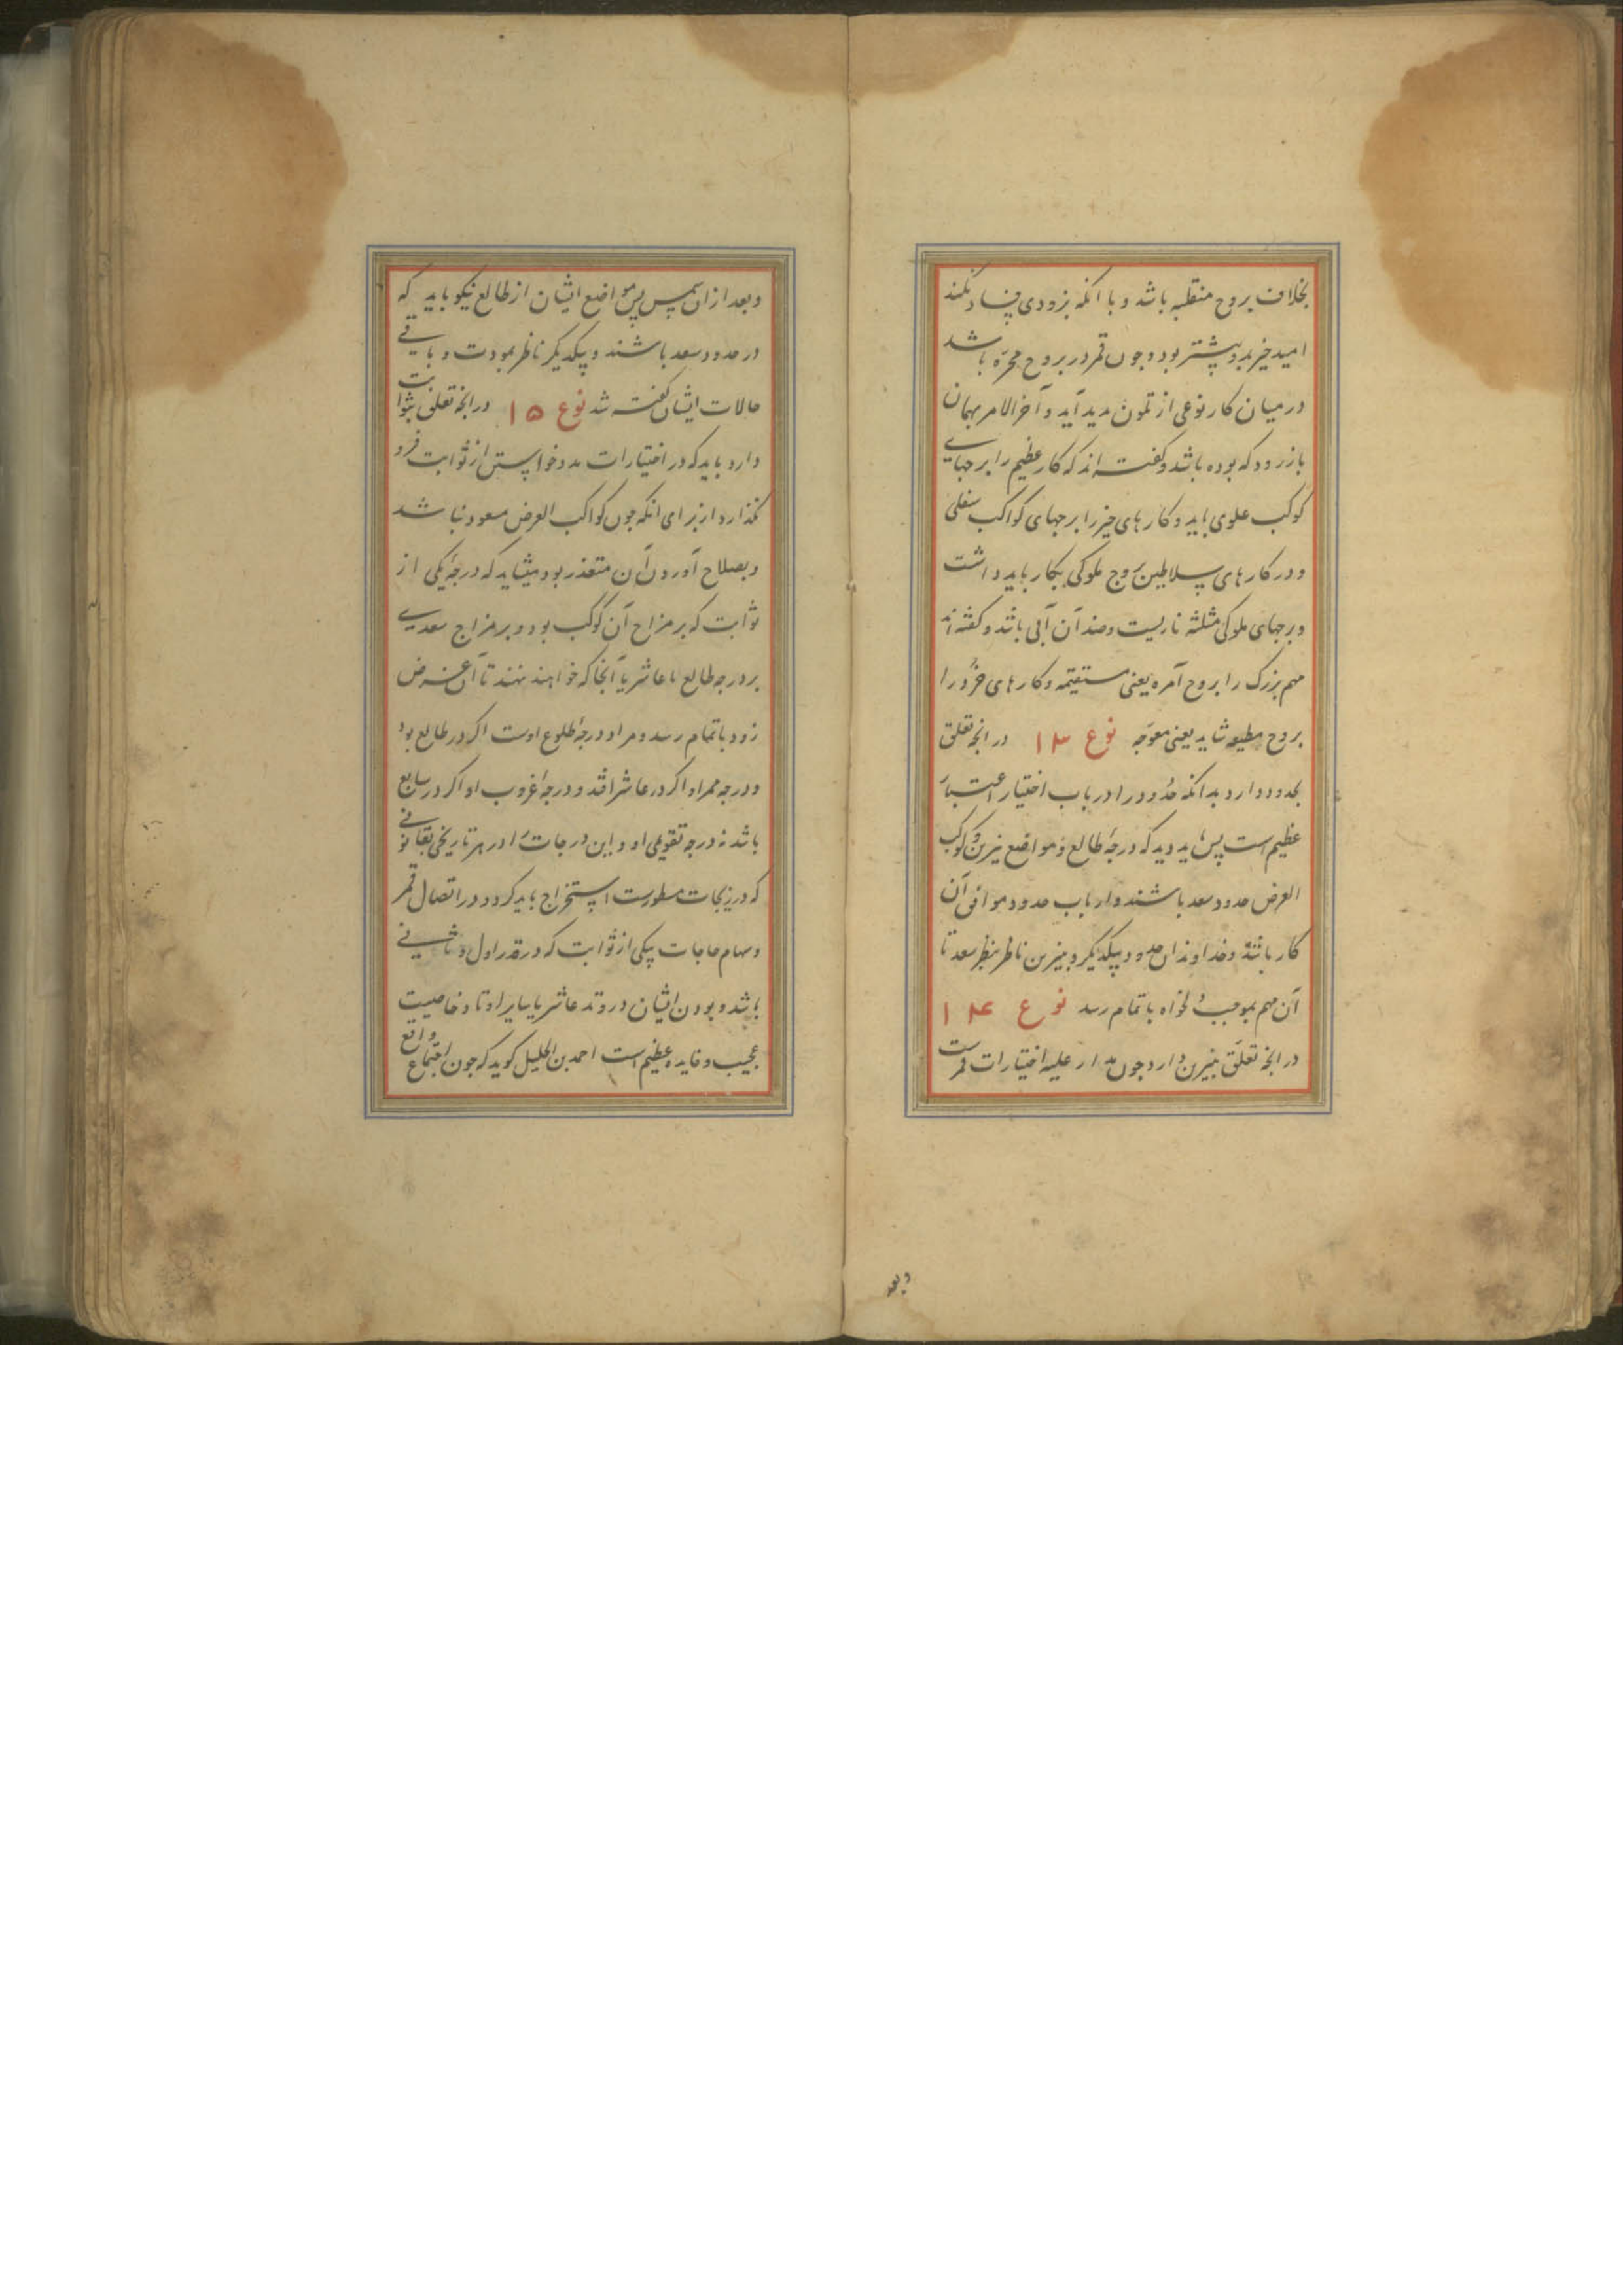 بخلاف بروج منقلبه باشد و با انکه بزودی فساد نکند
امید خیر بدو بیشتر بود و چون قمر در بروج مجره باشد
در میان کار نوعی از تلون پدید آید و آخر الامر بهمان
باز رود که بوده باشد و گفته اند که کار عظیم را برجهای
کوکب علوی باید و کارهای خیر را برجهای کواکب سفلی
و در کارهای سلاطین بروج ملوکی بکار باید داشت
و برجهای ملوکی مثلثه ناریست و ضد آن آبی باشد و گفته اند
مهم بزرگ را بروج آمره یعنی مستقیمه و کارهای خرد را
بروج مطیعه شاید یعنی معوجه نوع ۱۳ در انچه تعلق
بحدود دارد بدانکه حدود را در باب اختیار اعتبار
عظیم است پس باید دید که درجهٔ طالع و مواضع نیرین و کوکب
الغرض حدود سعد باشند و ارباب حدود موافق آن
کار باشند و خداوندان حدود بیکدیگر و بنیرین ناظر بنظر سعد تا
آن مهم بموجب دلخواه باتمام رسد نوع ۱۴
در انچه تعلق بنیرین دارد چون مدار علیه اختیارات قمرست
وبعد
و بعد ازان شمس پس مواضع ایشان از طالع نیکو باید که
در حدود سعد باشند و بیکدیگر ناظر بمودت و باقی
حالات ایشان گفته شد نوع ۱۵ در انچه تعلق بثوابت
دارد باید که در اختیارات مدد خواستن از ثوابت فرو
نگذارد از برای انکه چون کواکب الغرض مسعود نباشد
و بصلاح آوردن آن متعذر بود میشاید که درجهٔ یکی از
ثوابت که بر مزاج آن کوکب بود و بر مزاج سعدی
بر درجه طالع یا عاشر یا آنجا که خواهند نهند تا آن غرض
زود باتمام رسد و مراد درجهٔ طلوع اوست اکر در طالع بود
و درجه ممر او اکر در عاشر افتد و درجهٔ غروب او اکر در سابع
باشد نه درجه تقویمی او و این درجات را در هر تاریخی بقانونی
که در زیجات مسطورست استخراج باید کرد و در اتصال قمر
و سهام حاجات بیکی از ثوابت که در قدر اول و ثانی
باشد و بودن ایشان در وتد عاشر یا سایر اوتاد خاصیت
عجیب و فایده عظیم است احمد بن الجلیل گوید که چون اجتماع واقع